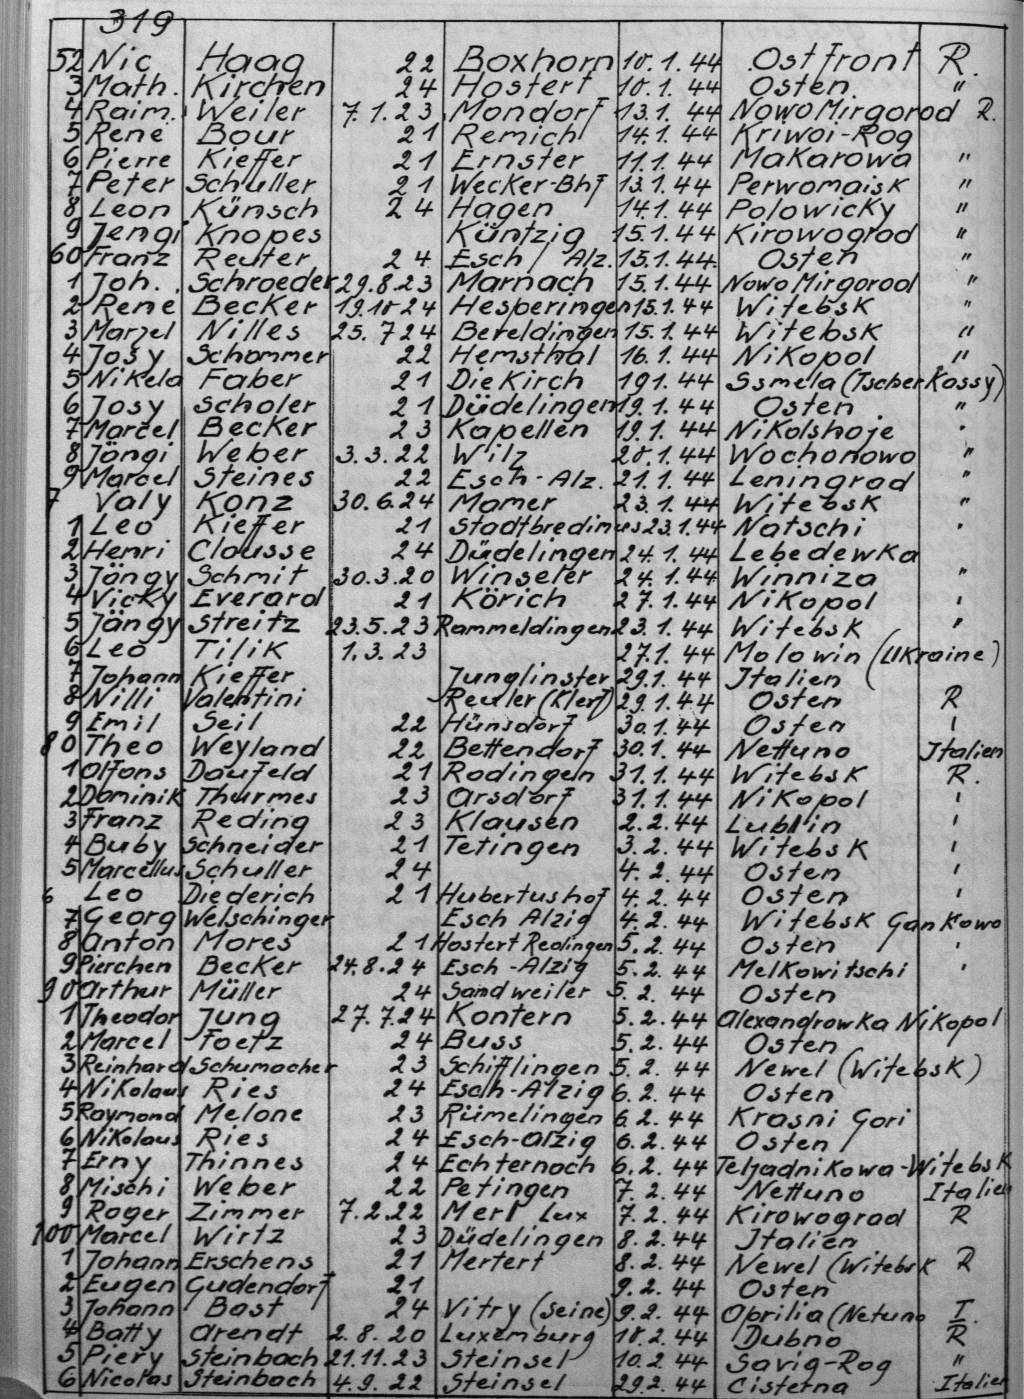 319
52 Nic Haag 22 Boxhorn 10.1.44 Ostfront R.
3 Math. Kirchen 24 Hostert 10.1.44 Osten "
4 Raim. Weiler 7.1.23 Mondorf 13.1.44 Nowo Mirgorod R.
5 René Bour 21 Remich 14.1.44 Kriwoi-Rog
6 Pierre Kieffer 21 Ernster 11.1.44 Makarowa "
7 Peter Schuller 21 Wecker-Bhf 13.1.44 Perwomaisk "
8 Leon Künsch 24 Hagen 14.1.44 Polowicky "
9 Jengi Knopes Küntzig 15.1.44 Kirowograd "
60 Franz Reuter 24 Esch / Alz. 15.1.44 Osten "
1 Joh. Schroeder 29.8.23 Marnach 15.1.44 Nowo Mirgorod "
2 René Becker 19.10 24 Hesperingen 15.1.44 Witebsk "
3 Marzel Nilles 25.7 24 Bereldingen 15.1.44 Witebsk "
4 Josy Schommer 22 Hemsthal 16.1.44 Nikopol "
5 Nikela Faber 21 Diekirch 19 1.44 Ssmela (Tscherkossy)
6 Josy Scholer 21 Düdelingen 19.1.44 Osten "
7 Marcel Becker 23 Kapellen 19.1.44 Nikolshoje "
8 Jöngi Weber 3.3.22 Wilz 20.1.44 Wochonowo "
9 Marcel Steines 22 Esch-Alz. 21.1.44 Leningrad "
7 Valy Konz 30.6.24 Mamer 23.1.44 Witebsk "
1 Leo Kieffer 21 Stadtbredimus 23.1.44 Natschi "
2 Henri Clausse 24 Düdelingen 24.1.44 Lebedewka
3 Jöngy Schmit 30.3.20 Winseler 24.1.44 Winniza "
4 Vicky Everard 21 Körich 27.1.44 Nikopol "
5 Jängy Streitz 23.5.23 Rammeldingen 23.1.44 Witebsk "
6 Leo Tilik 1.3.23 27.1.44 Molowin (Ukraine)
7 Johann Kieffer Junglinster 29.1.44 Italien
8 Nilli Valentini Reuler (Klerf) 29.1.44 Osten R
9 Emil Seil 22 Hünsdorf 30.1.44 Osten "
80 Theo Weyland 22 Bettendorf 30.1.44 Nettuno Italien
1 Olfons Daufeld 21 Rodingen 31.1.44 Witebsk R.
2 Dominik Thurmes 23 Arsdorf 31.1.44 Nikopol "
3 Franz Reding 23 Klausen 2.2.44 Lublin "
4 Buby Schneider 21 Tetingen 3.2.44 Witebsk "
5 Marcellus Schuller 24 4.2.44 Osten "
6 Leo Diederich 21 Hubertushof 4.2.44 Osten "
7 Georg Welschinger Esch Alzig 4.2.44 Witebsk Gankowo
8 Anton Mores 21 Hostert Redingen 5.2.44 Osten "
9 Pierchen Becker 24.8.24 Esch-Alzig 5.2.44 Melkowitschi "
90 Arthur Müller 24 Sandweiler 5.2.44 Osten
1 Theodor Jung 27.7.24 Kontern 5.2.44 Alexandrowka Nikopol
2 Marcel Foetz 24 Buss 5.2.44 Osten
3 Reinhard Schumacher 23 Schifflingen 5.2.44 Newel (Witebsk)
4 Nikolaus Ries 24 Esch-Alzig 6.2.44 Osten
5 Raymond Melone 23 Rümelingen 6.2.44 Krasni Gori
6 Nikolaus Ries 24 Esch-Alzig 6.2.44 Osten
7 Erny Thinnes 24 Echternach 6.2.44 Teljadnikowa-Witebsk
8 Mischi Weber 22 Petingen 7.2.44 Nettuno Italien
9 Roger Zimmer 7.2.22 Merl Lux 7.2.44 Kirowograd R
100 Marcel Wirtz 23 Düdelingen 8.2.44 Italien
1 Johann Erschens 21 Mertert 8.2.44 Newel (Witebsk R
2 Eugen Gudendorf 21 9.2.44 Osten
3 Johann Bast 24 Vitry (Seine) 9.2.44 Oprilia (Netuno I.
4 Batty Arendt 2.8.20 Luxemburg 10.2.44 Dubno R
5 Piery Steinbach 21.11.23 Steinsel 10.2.44 Savig-Rog "
6 Nicolas Steinbach 4.9.22 Steinsel 29.2.44 Cisterna Italien